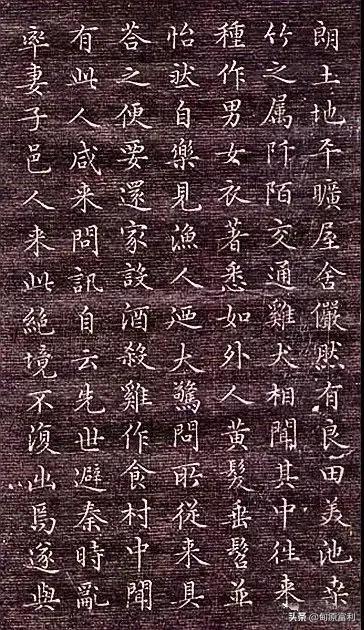 朗土地平曠屋舍儼然有良田美池桒
竹之属阡陌交通雞犬相聞其中往来
種作男女衣著悉如外人黄髮垂髫並
怡然自樂見漁人迺大驚問所従来具
荅之便要還家設酒殺雞作食村中聞
有此人咸来問訊自云先世避秦時亂
率妻子邑人来此絶境不復出焉遂與
头条 @甸原富利